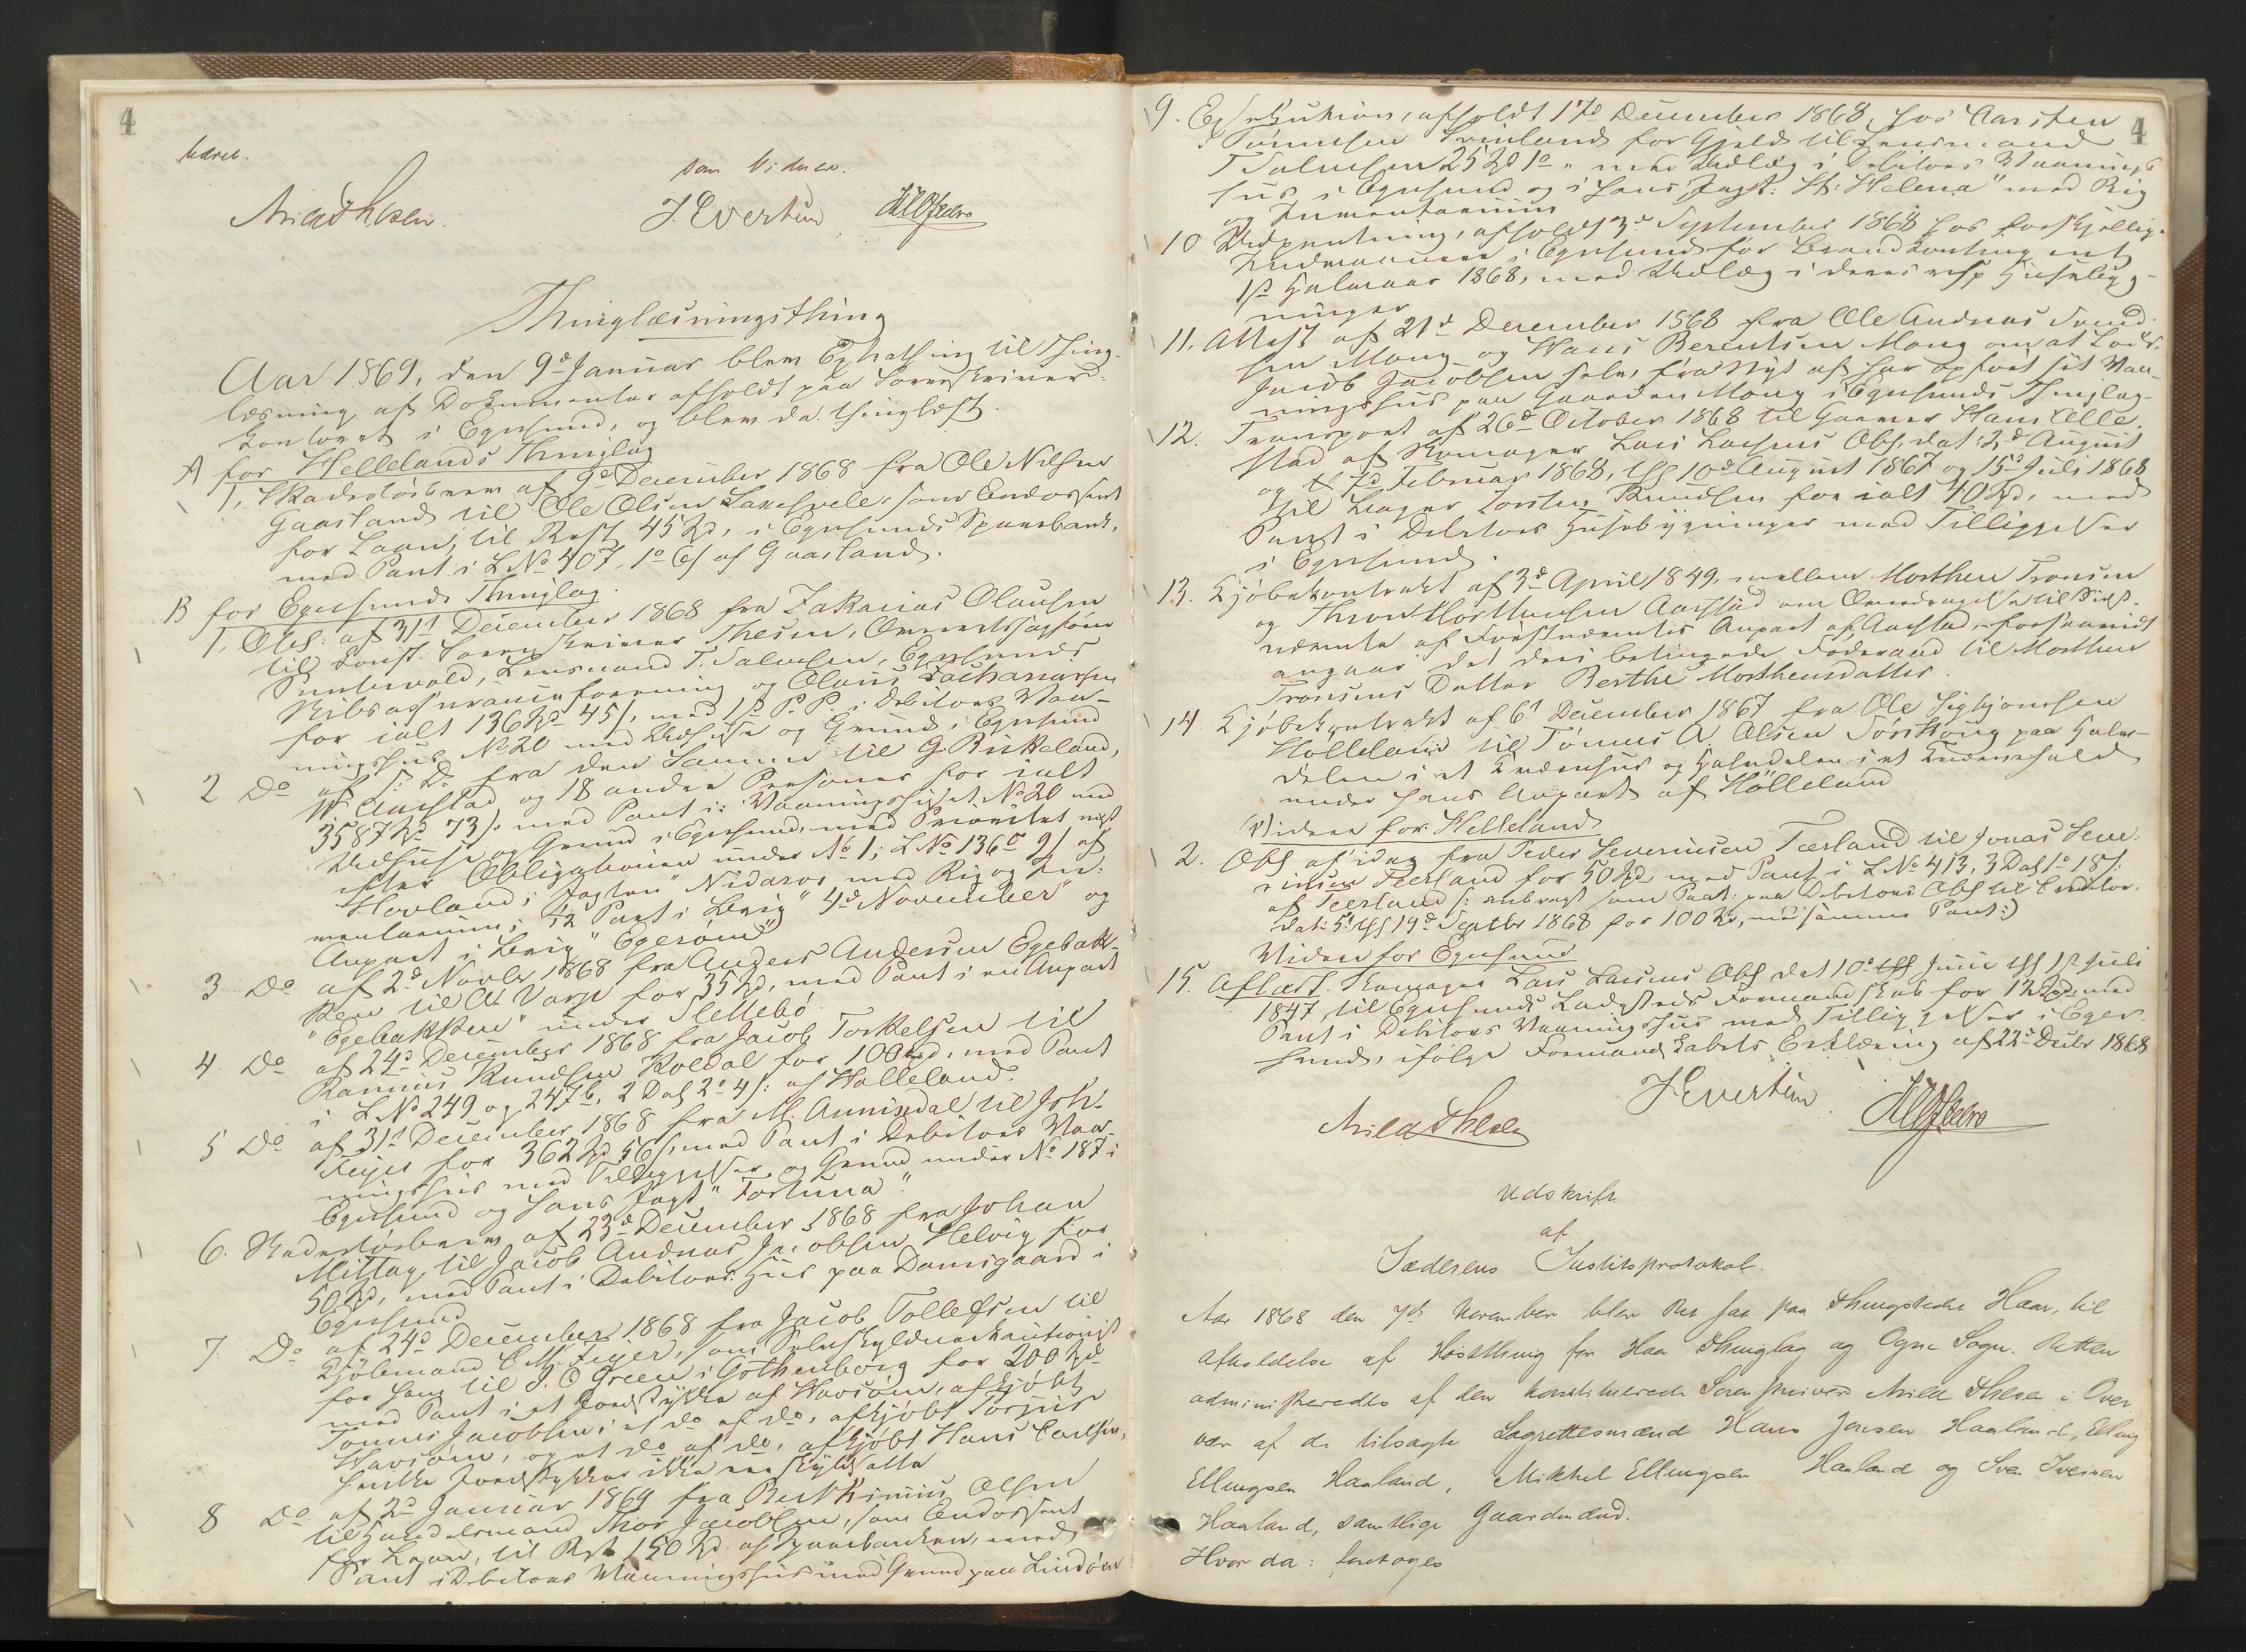 4
hævet.
som Vidner.
Arild Thesen. J. Evertsen
Thinglæsningsthing
Aar 1869, den 9d Januar blev Extrathing til Thing-
læsning af Dokumenter afholdt paa Sorenskriver-
kontoret i Egersund, og blev da thinglæst.
A for Hellelands Thinglag
1, Skadesløsbrev af 9d December 1868 fra Ole Nilsen
Gaasland til Ole Olsen som Endossent
for Laan, til Rest 45 Spd, i Egersunds Sparebank,
med Pant i L No 407, af Gaasland.
B for Egersunds Thinglag.
1, Obl: af 31t December 1868 fra Zakarias Olausen
til konst. Sorenskriver Thesen, Overretssagfører
Puntervold, Lensmand T. Salvesen, Egersunds
Skibsassuranceforening og Olaus Zachariassen
for ialt 136 Spd 45 s, med 1st P. P. i Debitors Vaa-
ningshus No 20 med Udhuse og Grund i Egersund
2 Do af S. D. fra den Samme til G. Birkeland,
Aarstad og 18 andre Personer for ialt
3587 Spd 73 s: med Pant i: Vaaningshuset No 20 med
Udhuse og Grund i Egersund, med Prioritet næst
efter Obligationen under No 1; L No 136 af
Hovland; Jagten "Nidaros med Rig og In-
ventarium; 1/2 Part i Brig "4d November" og
Anpart i Brig "Egerøen"
3 Do af 2d Novbr 1868 fra Anders Andersen Egebak-
ken til Varge for 35 Spd, med Pant i en Anpart
"Egebakken" under Slettebø
4 Do af 24d December 1868 fra Jacob Torkelsen til
Rasmus Knudsen Koldal for 100 Spd, med Pant
i L No 249 og 247b, 2 Dal 2o 4 s: af Hølleland.
5 Do af 31t December 1868 fra M. Aunisdal til Joh.
Feyer for 362 Spd 56 s, med Pant i Debitors Vaa-
ningshus med Tilliggelse og Grund under No 187 i
Egersund og hans Jagt "Fortuna".
6. Skadesløsbrev af 23d December 1868 fra Johan
Mittag, til Jacob Andreas Jacobsen Helvig for
50 Spd, med Pant i Debitors Hus paa Damsgaard i
Egersund
7 Do af 24d December 1868 fra Jacob Tollefsen til
Kjøbmand C. M. Feyer, som Selvskyldnerkautionist
for ham til J. O. Green i Gøthenborg for 200 Spd
med Pant i et Jordstykke af Havsøen, afkjøbt
Tønnes Jacobsen; et do af do, afkjøbt Torjus
Havsøen, og et do af do, afkjøbt Hans Carlsen,
hvilke Jordstykker ikke ere skyldsatte
8 Do af 2d Januar 1869 fra Olsen
til Handelsmand Thor Jacobsen, som Endossent
for Laan, til Rest 150 Spd af Sparebanken, med
Pant i Debitors Vaaningshus med Grund paa Lindøen
4
9. Exekution, afholdt 17d December 1868, hos Carsten
Tønnesen for Gjeld til Lensmand
T Salvesen 25 Spd 1o " med Udlæg i Debitors Vaanings-
hus i Egersund og i hans Jagt: "St: Helena" med Rig
og Inventarium
10 Udpantning, afholdt 3d September 1868 hos forskjellige
Huusmænd i Egersund for Brandkontingent
1st Halvaar 1868, med Udlæg i deres resp Husebyg-
ninger
11. Attest af 21d December 1868 fra Ole Andreas Svend-
sen Mong og Hans Berentsen Mong om at Lods
Jacob Jacobsen selv, fra Nyt af har opført sit Vaa-
ningshus paa Gaarden Mong i Egersunds Thinglag.
12. Transport af 26d October 1868 til Garver Hans Elle-
stad af Skomager Lars Larsens Obl, dat: 2d August
og 7d Februar 1868, thl 10d August 1867 og 15d Juli 1868
til Bager Torsten Knudsen for ialt 40 Spd, med
Pant i Debitors Husebygninger med Tilliggelser
i Egersund.
13. Kjøbekontrakt af 3d April 1849, mellem Morthen Tronsen
og Thron Morthensen Aarstad om Overdragelse til Sidst-
nævnte af Førstnævntes Anpart af Aarstad, forsaavidt
angaar det deri betingede Føderaad til Morthen
Tronsens Datter Berthe Morthensdatter.
14 Kjøbekontrakt af 6t December 1867 fra Ole Sigbjørnsen
Hølleland til Tønnes A Olsen paa Halv-
delen i et Kværnhus og Halvdelen i et Kværnefald
under hans Anpart af Hølleland
Videre for Helleland
2. Obl af idag fra Peder Severinsen Tærland til Jonas Seve-
rinsen Teerland for 50 Spd, med Pant i L No 413, 3 Dal 1o 18 s:
af Teerland /: anbragt som Paat: paa Debitors Obl til Creditor,
dat: 5t thl 19d Septbr 1868 for 100 Spd, med samme Pant:)
Videre for Egersund
15. Aflæst. Skomager Lars Larsens Obl dat 10d Juni thl 1st Juli
1847, til Egersunds Ladesteds Formandskab for 12 Spd, med
Pant i Debitors Vaaningshus med Tilliggelser i Eger-
sund, ifølge Formandskabets Erklæring af 22d Decbr 1868
Arild Thesen J. Evertsen
Udskrift
af
Jæderens Justitsprotokol.
Aar 1868 den 7de November blev Ret sat paa Thingstedet Haar, til
Afholdelse af Høstthing for Haa Thinglag og Ogne Sogn. Retten
administreredes af den konstituerede Sorenskriver Arild Thesen i Over
vær af de tilsagte Lagrettesmænd Hans Jensen Haaland, Elling
Ellingsen Haaland, Mikkel Ellingsen Haaland og Sven Iversen
Haaland, samtlige Gaardmænd.
Hvor da: foretoges